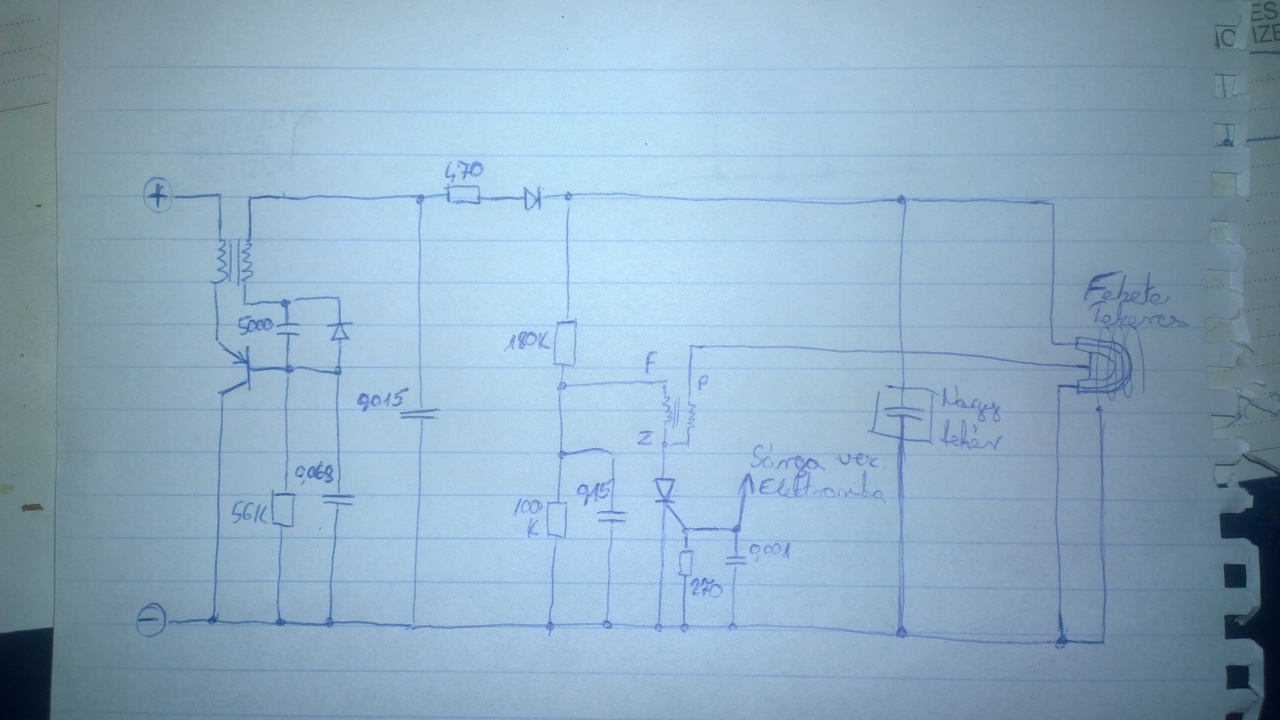 ES
IZE
470
+
Fekete
Tekercs
5000
180K
F
P
0,015
Nagy
fehér
Z
Sárga vez.
Elektronika
0,068
0,15
56K
100
K
0,001
270
−